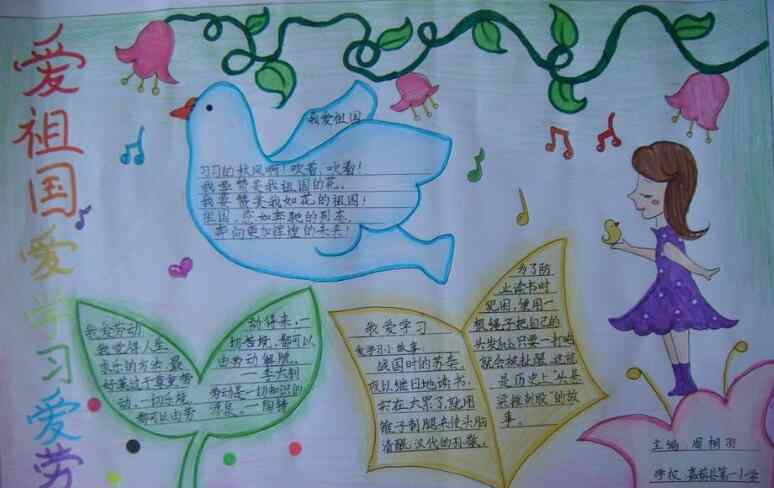 爱祖国爱学习爱劳
我爱祖国
习习的秋风啊！吹着，吹着！
我要赞美我祖国的花，
我要赞美我如花的祖国！
祖国，恋如奔驰的列车，
奔向更加辉煌的未来！
我爱劳动
我觉得人生
求乐的方法，最
好莫过于尊重劳
动。一切乐境，
都可以由劳
动得来，一
切苦境，都可以
由劳动解脱。
—李大钊
劳动是一切知识的
源泉。—陶铸
我爱学习
爱学习小故事：
战国时的苏秦，
夜以继日地读书，
实在太累了，就用
锥子刺腿来使头脑
清醒。汉代的孙敬，
为了防
止读书时
犯困，便用一
根绳子把自己的
头发
只要一打盹
就会被扯醒。这就
是历史上“头悬
梁锥刺股”的故
事。
主编
学校
第一小学